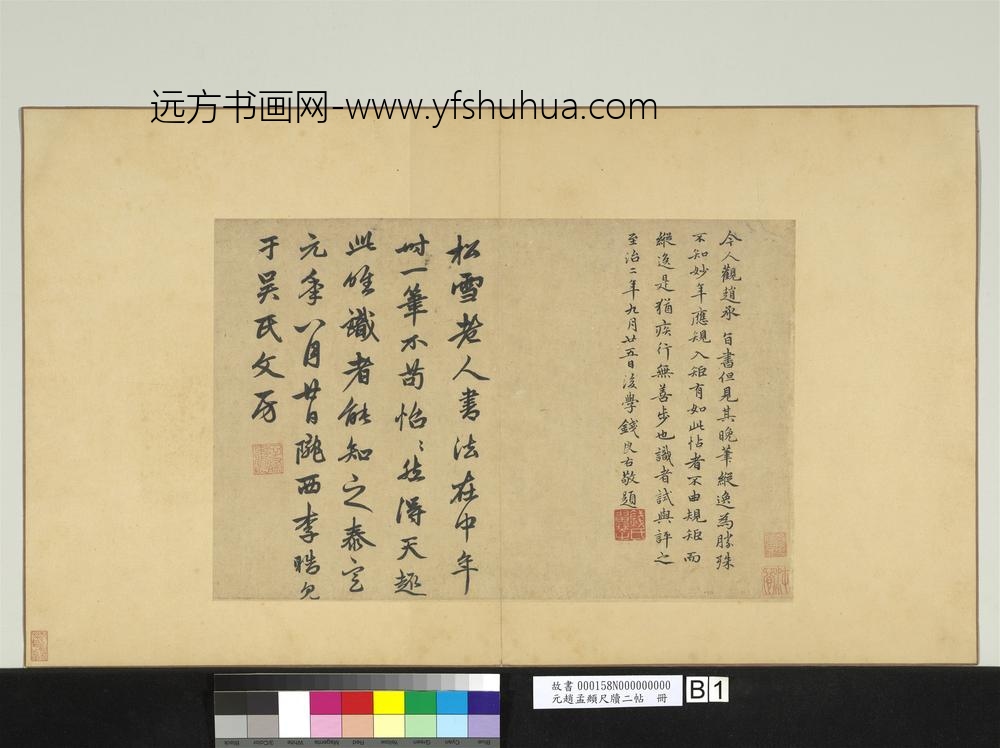 远方书画网-www.yfshuhua.com
今人觀趙承旨書但見其晚筆縱逸為勝殊
不知妙年應規入矩有如此帖者不由規矩而
縱逸是猶疾行無善步也識者試與評之
至治二年九月廿五日後學錢良右敬題
松雪老人書法在中年
時一筆不苟怡〻然得天趣
此唯識者能知之泰定
元年八月廿日隴西李晧
于吳氏文房
故書 000158N000000000
元趙孟頫尺牘二帖 冊
B 1
Black
3/Color
White
Magenta
Red
Yellow
Green
Cyan
Blue